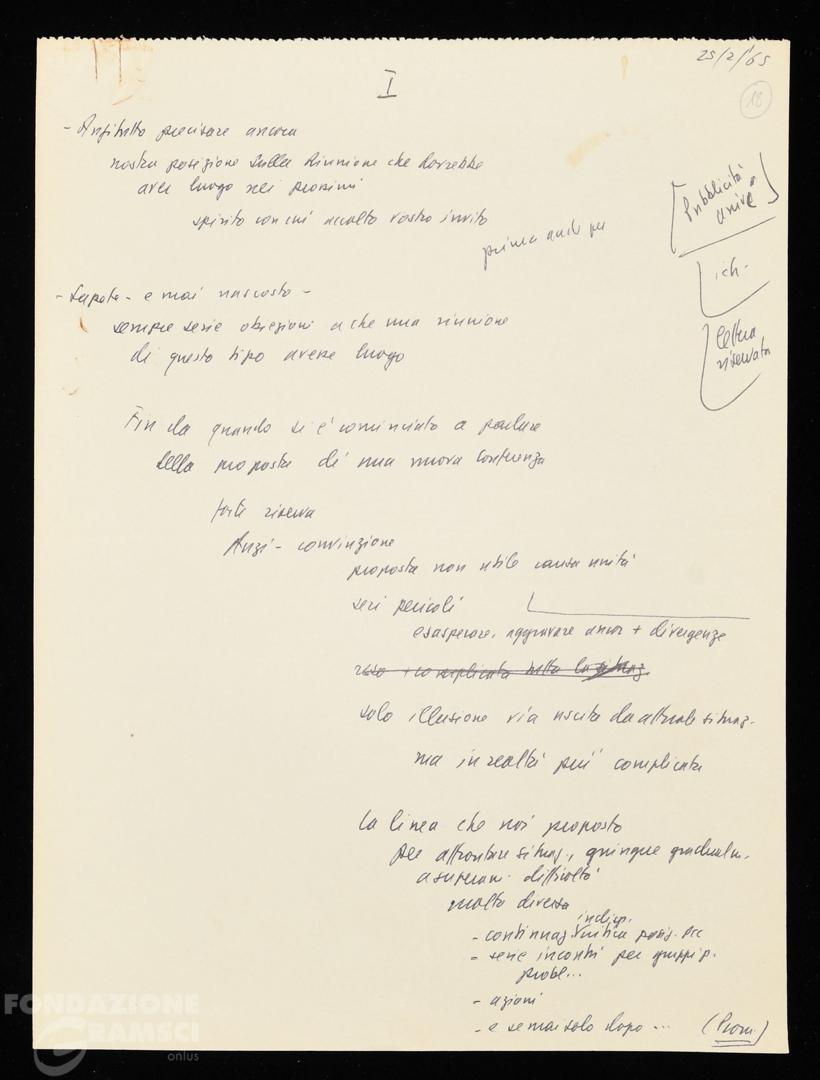 25/2/65
I
18
- Anzitutto precisare ancora
nostra posizione sulla riunione che dovrebbe
aver luogo nei prossimi
spirito con cui accolto vostro invito
prima anche per
Pubblicità
ich.
lettura
riservata
- Sapete - e mai nascosto -
sempre serie obiezioni a che una riunione
di questo tipo avesse luogo
Fin da quando si è cominciato a parlare
della proposta di una nuova conferenza
forti riserva
Anzi - convinzione
proposta non utile causa unità
seri pericoli
esasperare, aggravare ancor + divergenze
reso + complicata tutta la situaz.
solo illusione via uscita da attuale situaz.
ma in realtà più complicata
la linea che noi proposto
per affrontare situaz, giungere gradualm.
a superam. difficoltà
molto diversa
indisp.
- continuaz. critica posiz. PCC
- serie incontri per gruppi p.
probl...
- azioni
- e semai solo dopo ... (Prom.)
FONDAZIONE
GRAMSCI
onlus